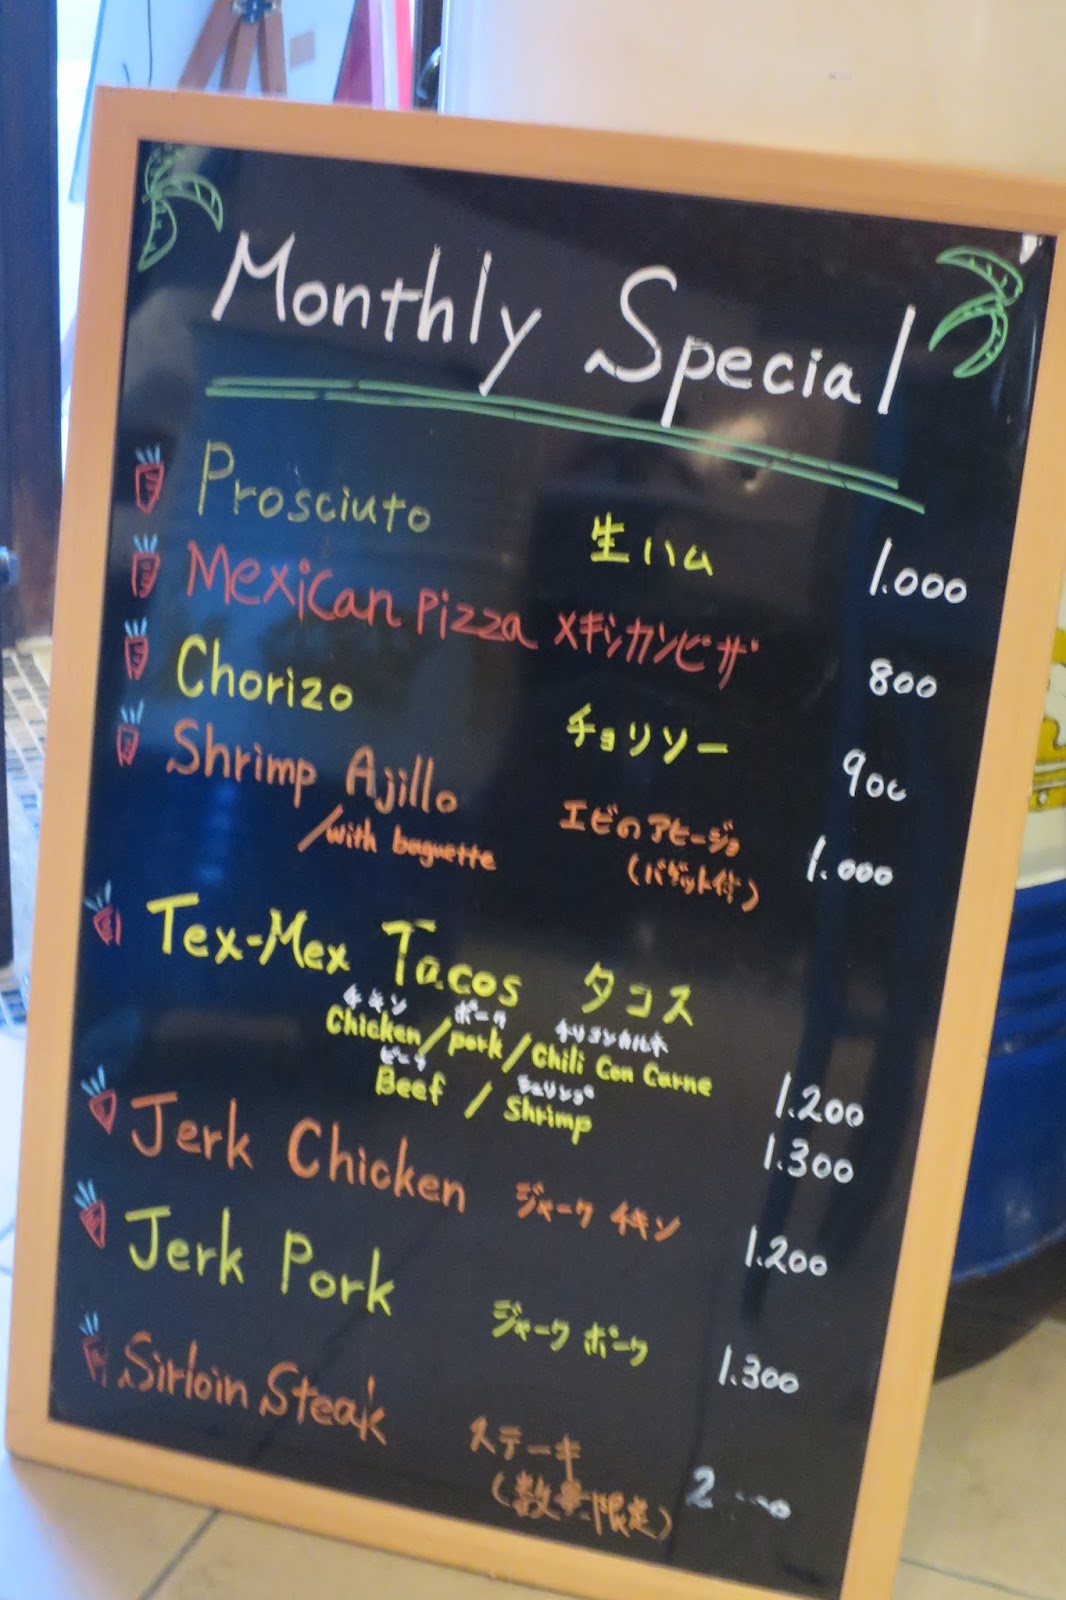 Monthly Special
Prosciuto 生ハム 1.000
Mexican Pizza メキシカンピザ 800
Chorizo チョリソー 900
Shrimp Ajillo エビのアヒージョ
/with baguette (バゲット付) 1.000
Tex-Mex Tacos タコス
チキン ポーク チリコンカルネ
Chicken/pork/Chili Con Carne 1.200
ビーフ シュリンプ
Beef / Shrimp 1.300
Jerk Chicken ジャーク チキン 1.200
Jerk Pork ジャーク ポーク 1.300
Sirloin Steak ステーキ
(数量限定)